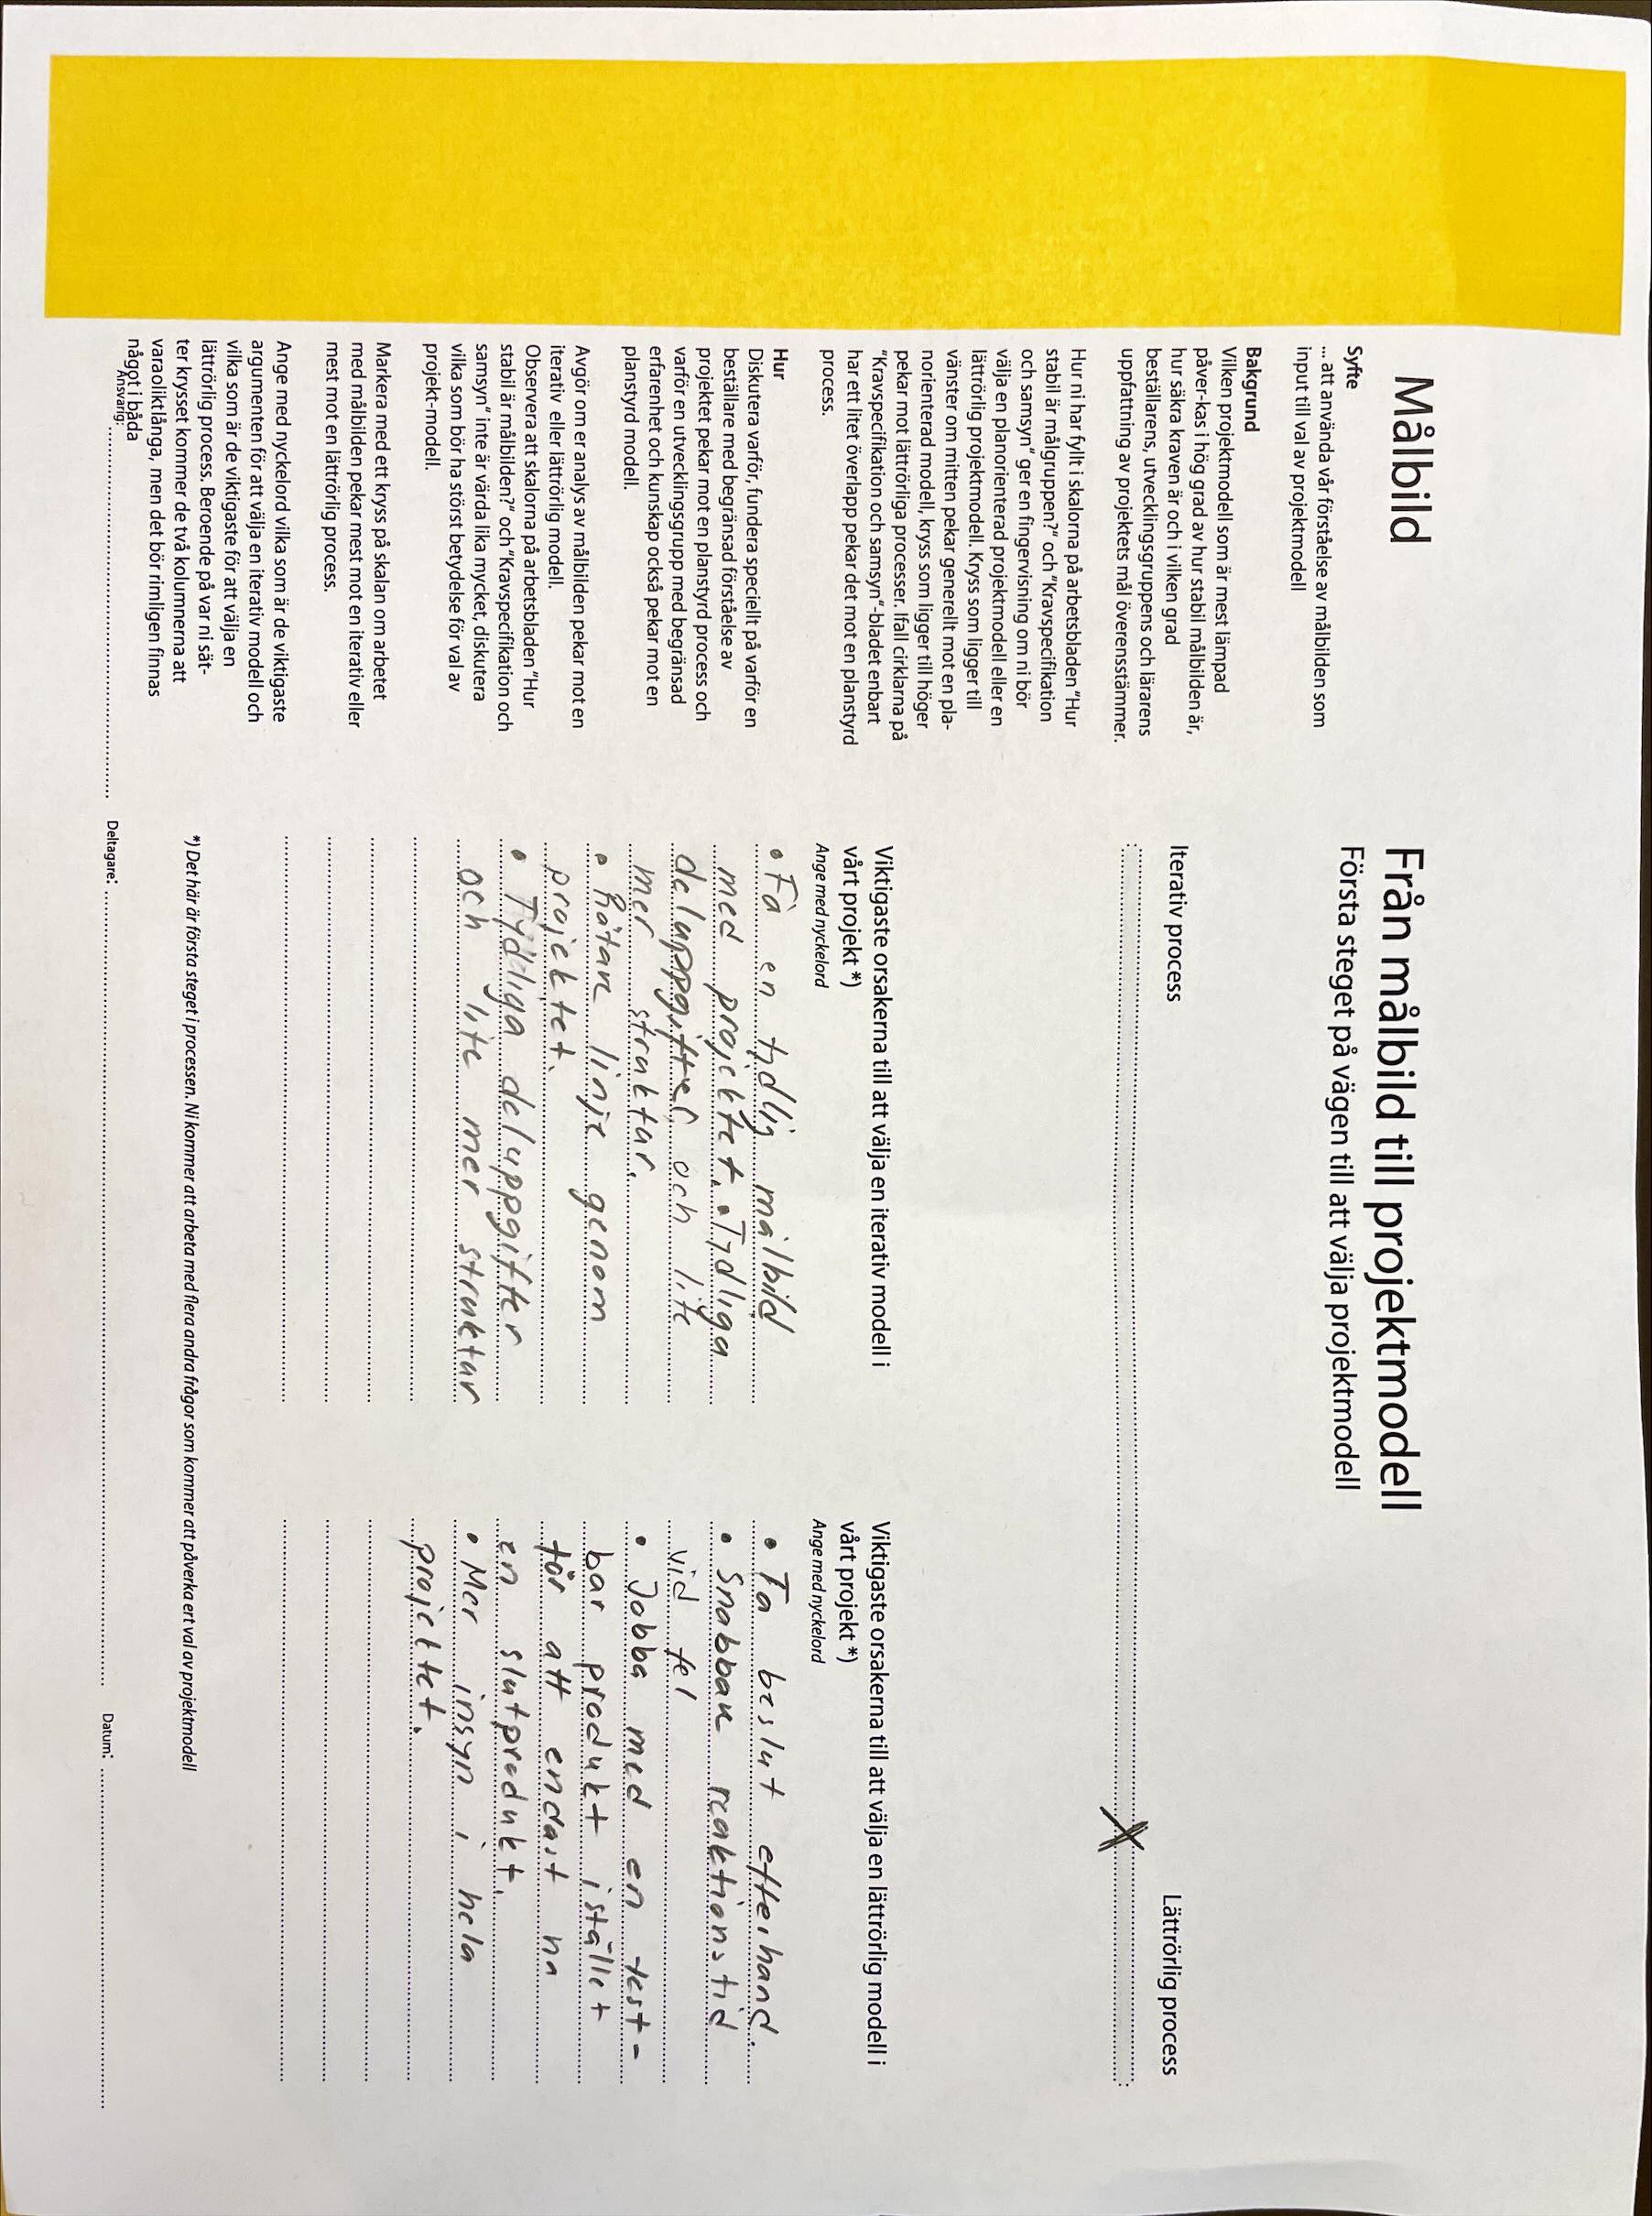 Målbild
Från målbild till projektmodell
Första steget på vägen till att välja projektmodell
Syfte
... att använda vår förståelse av målbilden som
input till val av projektmodell
Bakgrund
Vilken projektmodell som är mest lämpad
påver-kas i hög grad av hur stabil målbilden är,
hur säkra kraven är och i vilken grad
beställarens, utvecklingsgruppens och lärarens
uppfattning av projektets mål överensstämmer.
Hur ni har fyllt i skalorna på arbetsbladen "Hur
stabil är målgruppen?" och "Kravspecifikation
och samsyn" ger en fingervisning om ni bör
välja en planorienterad projektmodell eller en
lättrörlig projektmodell. Kryss som ligger till
vänster om mitten pekar generellt mot en pla-
norienterad modell, kryss som ligger till höger
pekar mot lättrörliga processer. Ifall cirklarna på
"Kravspecifikation och samsyn"-bladet enbart
har ett litet överlapp pekar det mot en planstyrd
process.
Hur
Diskutera varför, fundera speciellt på varför en
beställare med begränsad förståelse av
projektet pekar mot en planstyrd process och
varför en utvecklingsgrupp med begränsad
erfarenhet och kunskap också pekar mot en
planstyrd modell.
Avgör om er analys av målbilden pekar mot en
iterativ eller lättrörlig modell.
Observera att skalorna på arbetsbladen "Hur
stabil är målbilden?" och "Kravspecifikation och
samsyn" inte är värda lika mycket, diskutera
vilka som bör ha störst betydelse för val av
projekt-modell.
Markera med ett kryss på skalan om arbetet
med målbilden pekar mest mot en iterativ eller
mest mot en lättrörlig process.
Ange med nyckelord vilka som är de viktigaste
argumenten för att välja en iterativ modell och
vilka som är de viktigaste för att välja en
lättrörlig process. Beroende på var ni sät-
ter krysset kommer de två kolumnerna att
varaoliktlånga, men det bör rimligen finnas
något i båda
Iterativ process
Lättrörlig process
X
Viktigaste orsakerna till att välja en iterativ modell i
vårt projekt *)
Ange med nyckelord
• Få en tydlig målbild
med projektet. • Tydliga
deluppgifter och lite
mer struktur.
• Rätare linje genom
projektet.
• Tydliga deluppgifter
och lite mer struktur
Viktigaste orsakerna till att välja en lättrörlig modell i
vårt projekt *)
Ange med nyckelord
• Ta beslut efterhand.
• Snabbare reaktionstid
vid fel
• Jobba med en test-
bar produkt istället
för att endast ha
en slutprodukt.
• Mer insyn i hela
projektet.
*) Det här är första steget i processen. Ni kommer att arbeta med flera andra frågor som kommer att påverka ert val av projektmodell
Ansvarig:
Deltagare:
Datum: